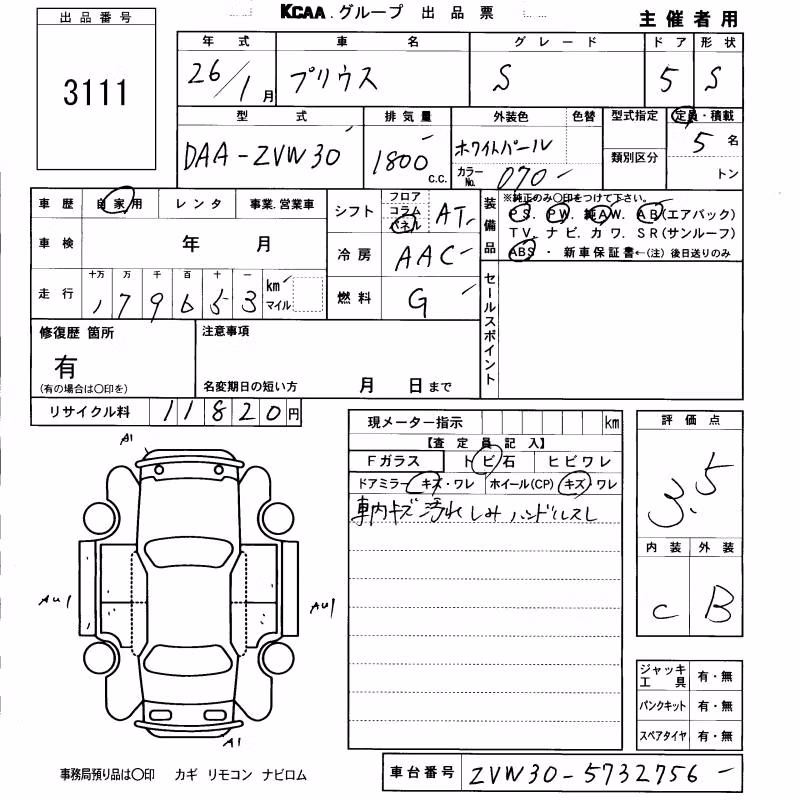 KCAA.グループ 出品票
主催者用
出品番号
3111
年式 車名 グレード ドア 形状
26/1月 プリウス S 5 S
型式 排気量 外装色 色替 型式指定 定員・積載
DAA-ZVW30 1800 c.c. ホワイトパール 5名
カラーNo. 070 類別区分 トン
車歴 自家用 レンタ 事業.営業車
車検 年 月
走行 十万 万 千 百 十 一
179653 km マイル
シフト フロア コラム パネル AT
冷房 AAC
燃料 G
装備品
※純正のみ〇印をつけて下さい。
PS. PW. 純AW. AB(エアバック)
TV. ナビ. カワ. SR(サンルーフ)
ABS・新車保証書←(注)後日送りのみ
セールスポイント
修復歴 箇所
有
(有の場合は〇印を)
注意事項
名変期日の短い方 月 日まで
リサイクル料 11820円
現メーター指示 km
【査定員記入】
Fガラス トビ石 ヒビワレ
ドアミラー キズ・ワレ ホイール(CP) キズ・ワレ
車内キズ 汚れ しみ ハンドルスレ
評価点
3.5
内装 外装
C B
A1
AU1
AU1
A1
ジャッキ工具 有・無
パンクキット 有・無
スペアタイヤ 有・無
事務局預り品は〇印 カギ リモコン ナビロム
車台番号 ZVW30-5732756